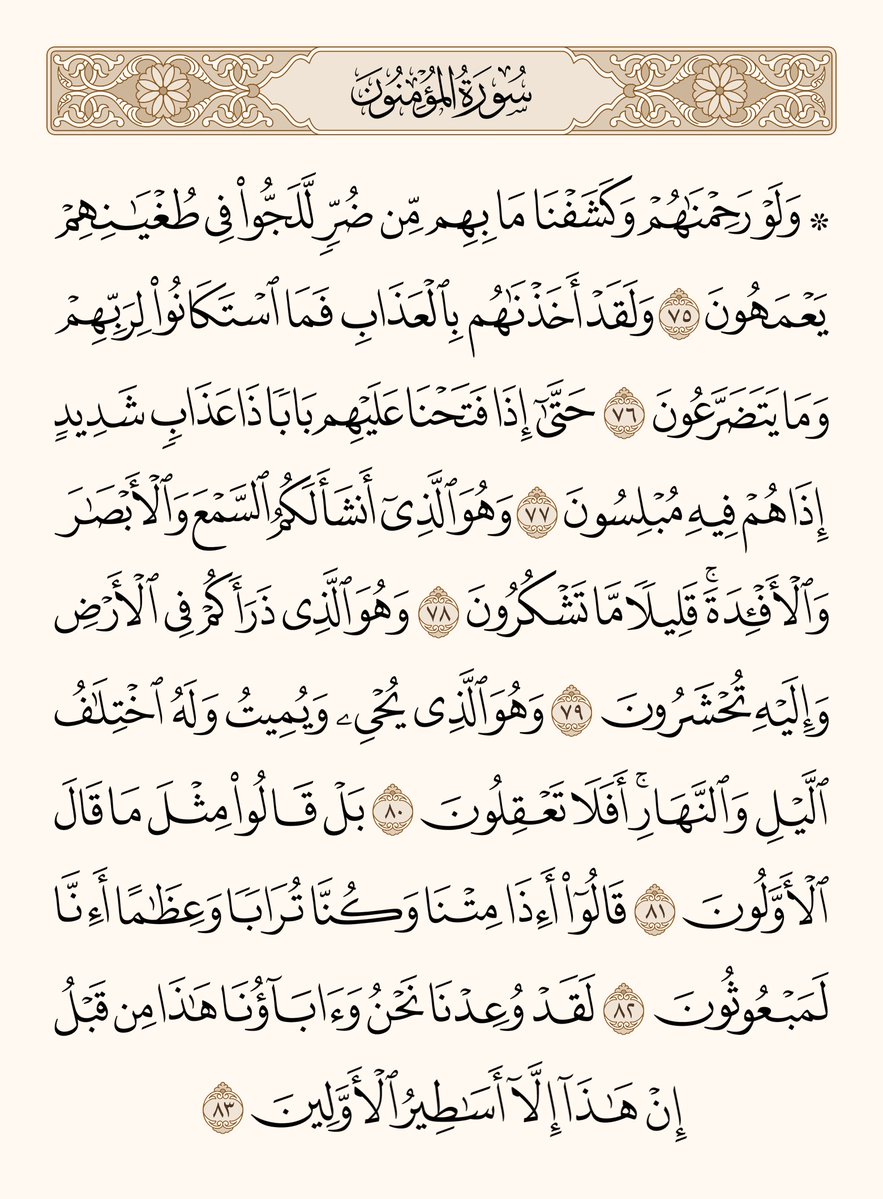 سُورَةُ المُؤۡمِنُونَ
۞ وَلَوۡ رَحِمۡنَٰهُمۡ وَكَشَفۡنَا مَا بِهِم مِّن ضُرّٖ لَّلَجُّواْ فِي طُغۡيَٰنِهِمۡ
يَعۡمَهُونَ ٧٥ وَلَقَدۡ أَخَذۡنَٰهُم بِٱلۡعَذَابِ فَمَا ٱسۡتَكَانُواْ لِرَبِّهِمۡ
وَمَا يَتَضَرَّعُونَ ٧٦ حَتَّىٰٓ إِذَا فَتَحۡنَا عَلَيۡهِم بَابٗا ذَا عَذَابٖ شَدِيدٍ
إِذَا هُمۡ فِيهِ مُبۡلِسُونَ ٧٧ وَهُوَ ٱلَّذِيٓ أَنشَأَ لَكُمُ ٱلسَّمۡعَ وَٱلۡأَبۡصَٰرَ
وَٱلۡأَفۡـِٔدَةَۚ قَلِيلٗا مَّا تَشۡكُرُونَ ٧٨ وَهُوَ ٱلَّذِي ذَرَأَكُمۡ فِي ٱلۡأَرۡضِ
وَإِلَيۡهِ تُحۡشَرُونَ ٧٩ وَهُوَ ٱلَّذِي يُحۡيِۦ وَيُمِيتُ وَلَهُ ٱخۡتِلَٰفُ
ٱلَّيۡلِ وَٱلنَّهَارِۚ أَفَلَا تَعۡقِلُونَ ٨٠ بَلۡ قَالُواْ مِثۡلَ مَا قَالَ
ٱلۡأَوَّلُونَ ٨١ قَالُوٓاْ أَءِذَا مِتۡنَا وَكُنَّا تُرَابٗا وَعِظَٰمًا أَءِنَّا
لَمَبۡعُوثُونَ ٨٢ لَقَدۡ وُعِدۡنَا نَحۡنُ وَءَابَآؤُنَا هَٰذَا مِن قَبۡلُ
إِنۡ هَٰذَآ إِلَّآ أَسَٰطِيرُ ٱلۡأَوَّلِينَ ٨٣